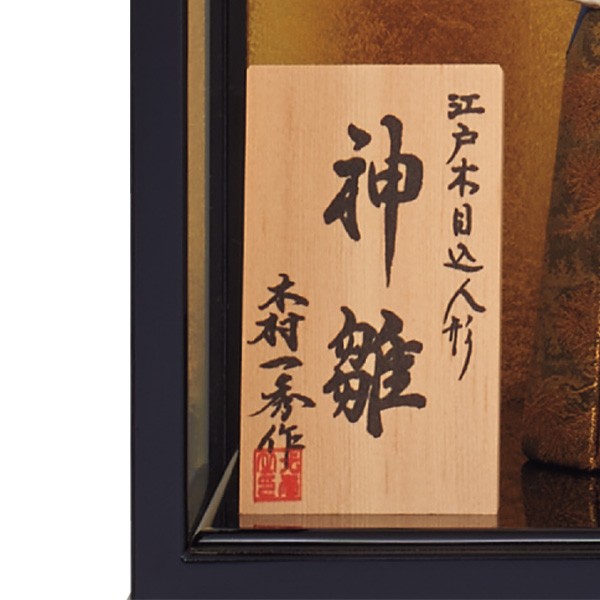 江戸木目込人形
神雛
木村一秀作